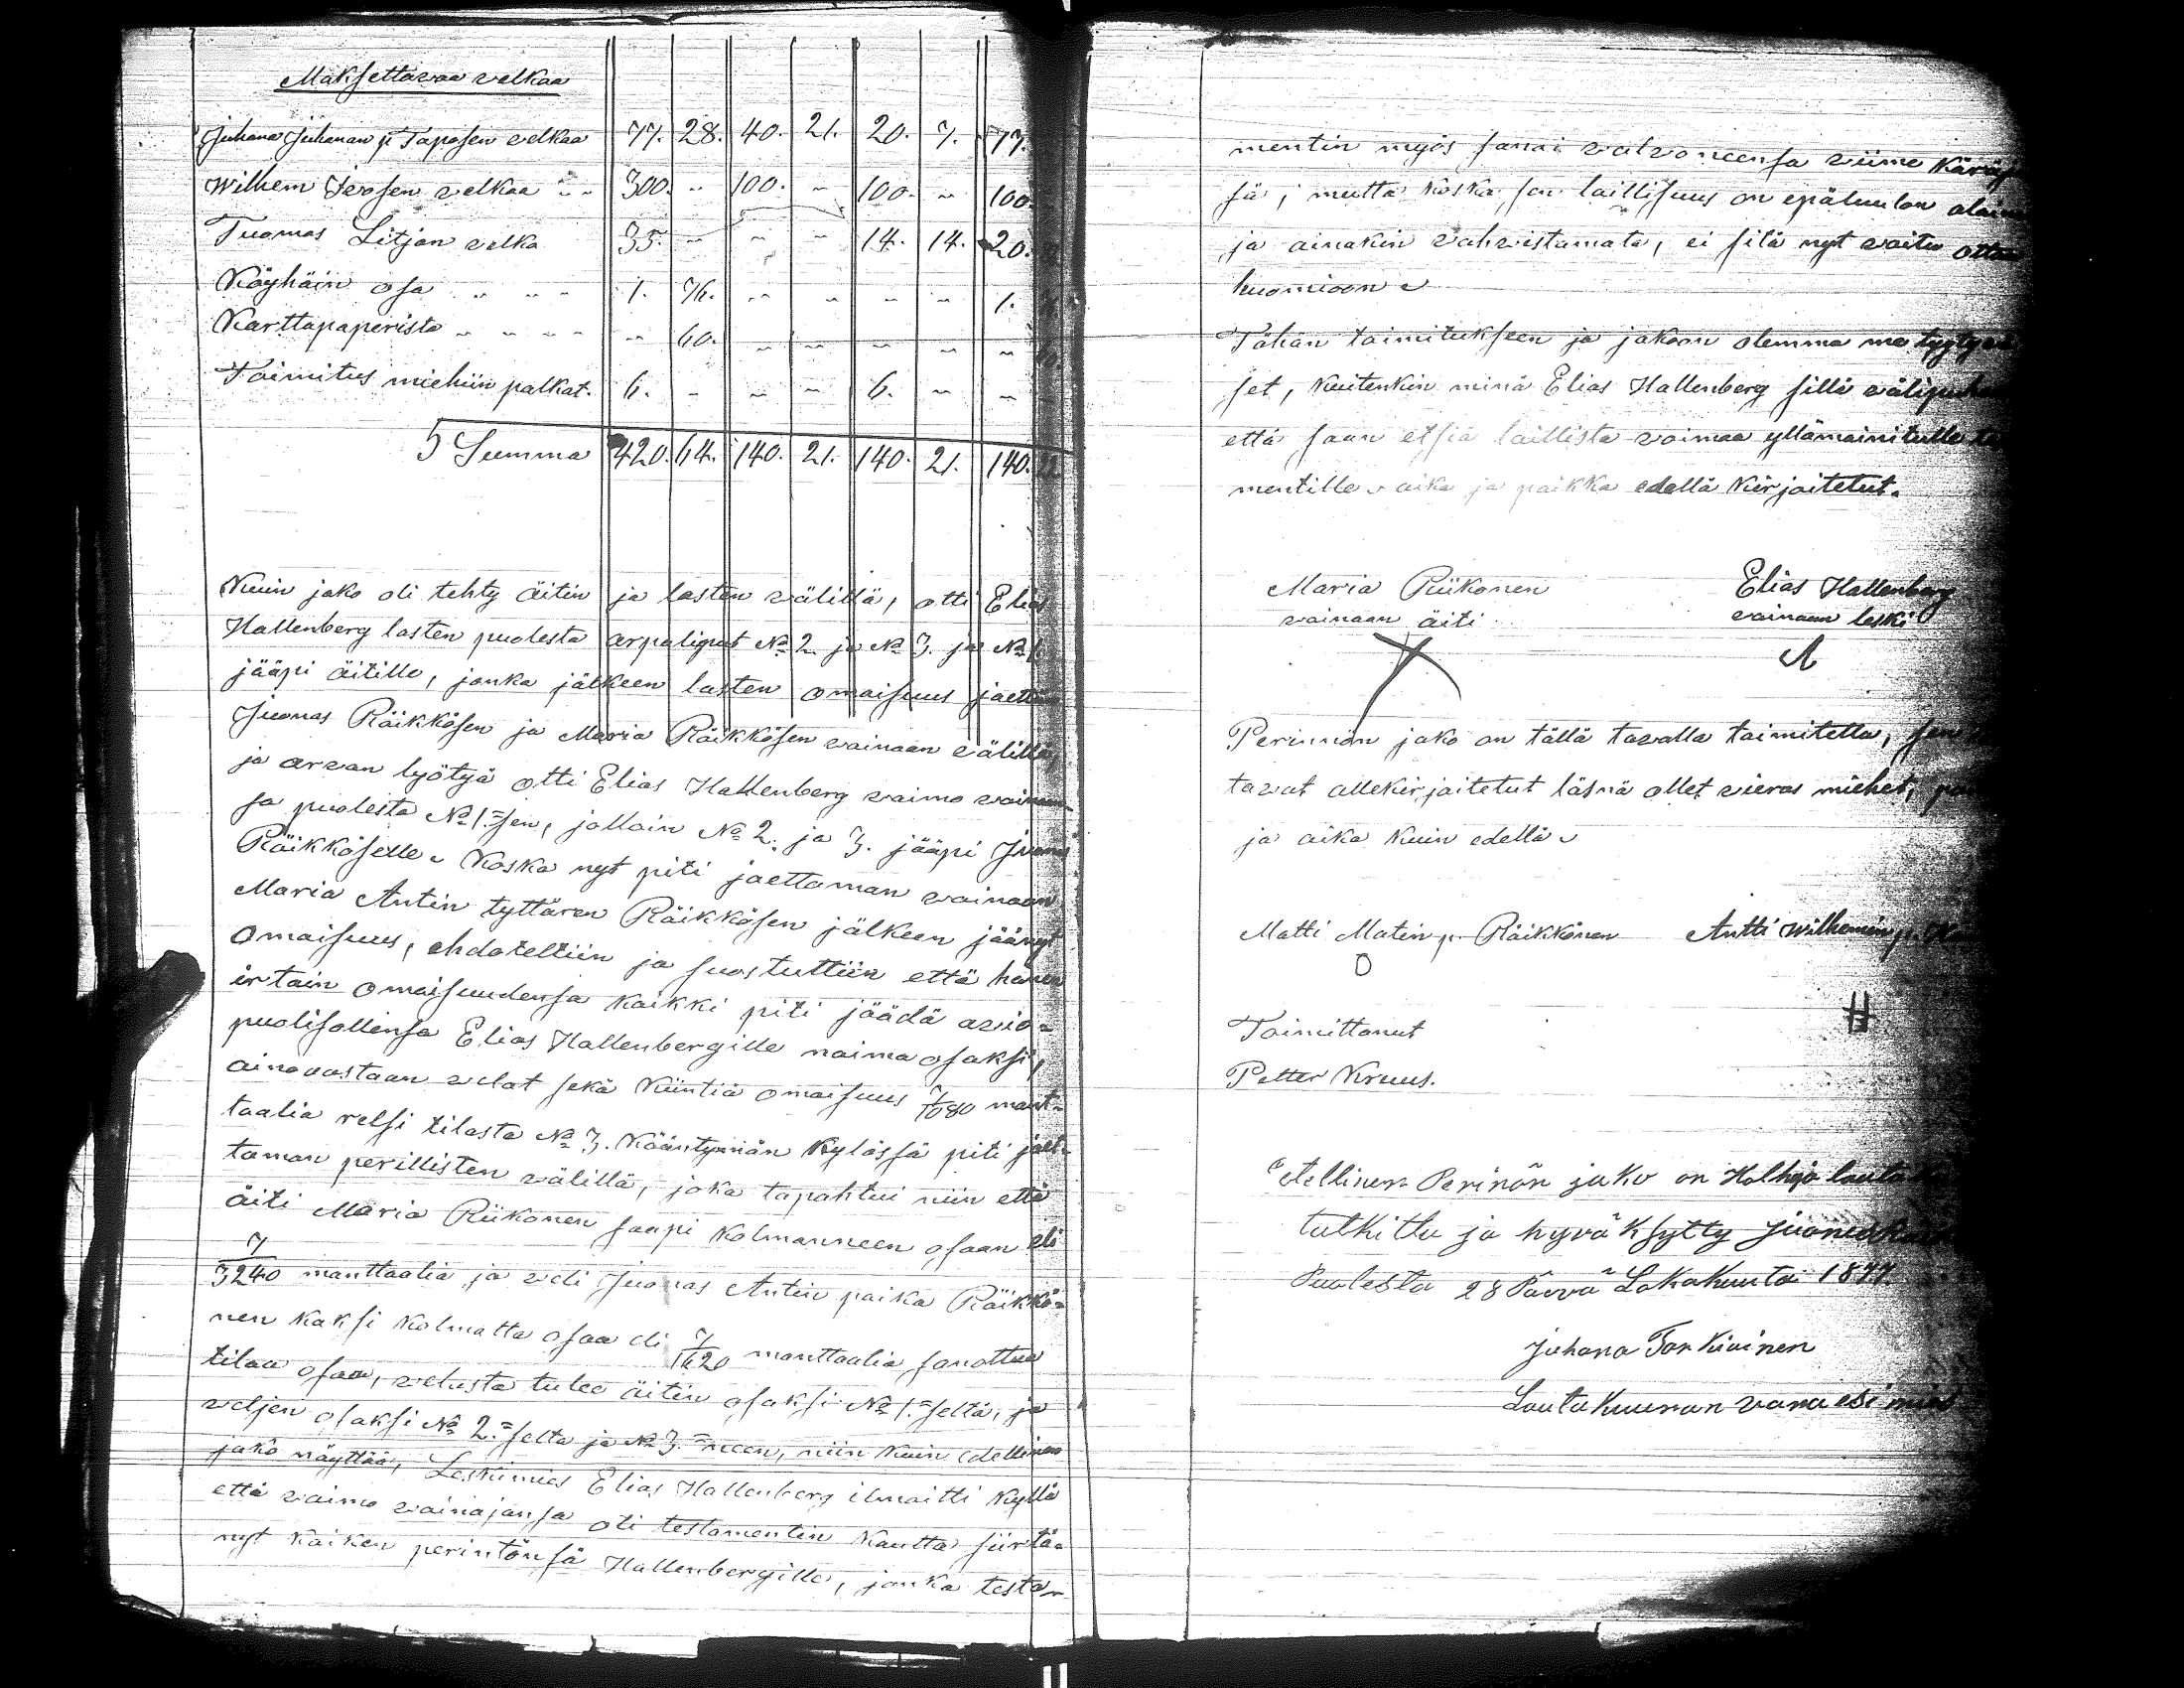 Maksettavaa velkaa
Juhana Juhanan p. Taposen velkaa 77. 28. 40. 21. 20. 7. 17.
Wilhem Ievosen velkaa 300. 100. 100. 100.
Tuomas Litjan velka 35. 14. 14. 20.
Köyhäin osa 1. 76. 1.
Karttapaperista 60.
Toimitus miehiin palkat. 6. 6.
Summa 420. 64. 140. 21. 140. 21. 140.
Kuin jako oli tehty äitin ja lasten välillä, otti Elias
Hallenberg lasten puolesta arpaliput No 2. ja No 3. ja No 1.
jääpi äitille, jonka jälkeen lasten omaisuus jaettiin
Juonas Räikkösen ja Maria Räikkösen vainaan välillä,
ja arvan lyötyä otti Elias Hallenberg vaimo vainaan-
sa puolesta No 1.=sen, jolloin No 2. ja 3. jääpi Juonas
Räikköselle. Koska nyt piti jaettaman vainaan
Maria Antin tyttären Räikkösen jälkeen jäänyt
omaisuus, ehdoteltiin ja suostuttiin että hänen
irtain omaisuudensa kaikki piti jäädä avio-
puolisollensa Elias Hallenbergille naima osaksi,
ainoaastaan velat sekä kiintiä omaisuus 7/1080 mant-
taalia relsi tilasta No 3. Kääntymän kylässä piti jaet-
taman perillisten välillä, joka tapahtui niin että
äiti Maria Riikonen saapi kolmanneen osaan eli
7/3240 manttaalia ja veli Juonas Antin poika Räikkö-
nen kaksi kolmatta osaa eli 7/1620 manttaalia sanottua
tilaa osaa, velasta tulee äitin osaksi No 1.=seltä, ja
veljen osaksi No 2.=selta ja No 3.=neen, niin kuin edellinen
jako näyttää, Leskimies Elias Hallenberg ilmaitti kyllä
että vaimo vainajansa oli testamentin kautta siirtä-
nyt kaiken perintönsä Hallenbergille, jonka testa-
mentin myös sanoi valvoneensa viime Käräjis
sä; mutta koska sen laillisuus on epäluulon alainen
ja ainakin vahvistamata, ei sitä nyt voitu ottaa
huomioon.
Tähän toimitukseen ja jakoon olemma me tyytyväi
set, kuitenkin minä Elias Hallenberg sillä välipuhe
että saan etsiä laillista voimaa yllämainitulle te
mentille. aika ja paikka edellä kirjoitetut.
Maria Riikonen Elias Hallenberg
vainaan äiti vainaan leski
Perinnön jako on tällä tavalla toimitettu, sen
tavat allekirjoitetut läsnä ollet vieras miehet,
ja aika kuin edellä.
Matti Matin p. Räikkönen Antti Wilhemin p.
Toimittanut
Petter Kruus.
Etellinen Perinön jako on Holhoja lauta
tutkittu ja hyväksytty Juonas
Puolesta 28 Päivä Lokakuuta 1877.
Juhana Tonkiainen
Lautakunnan vara esi mies